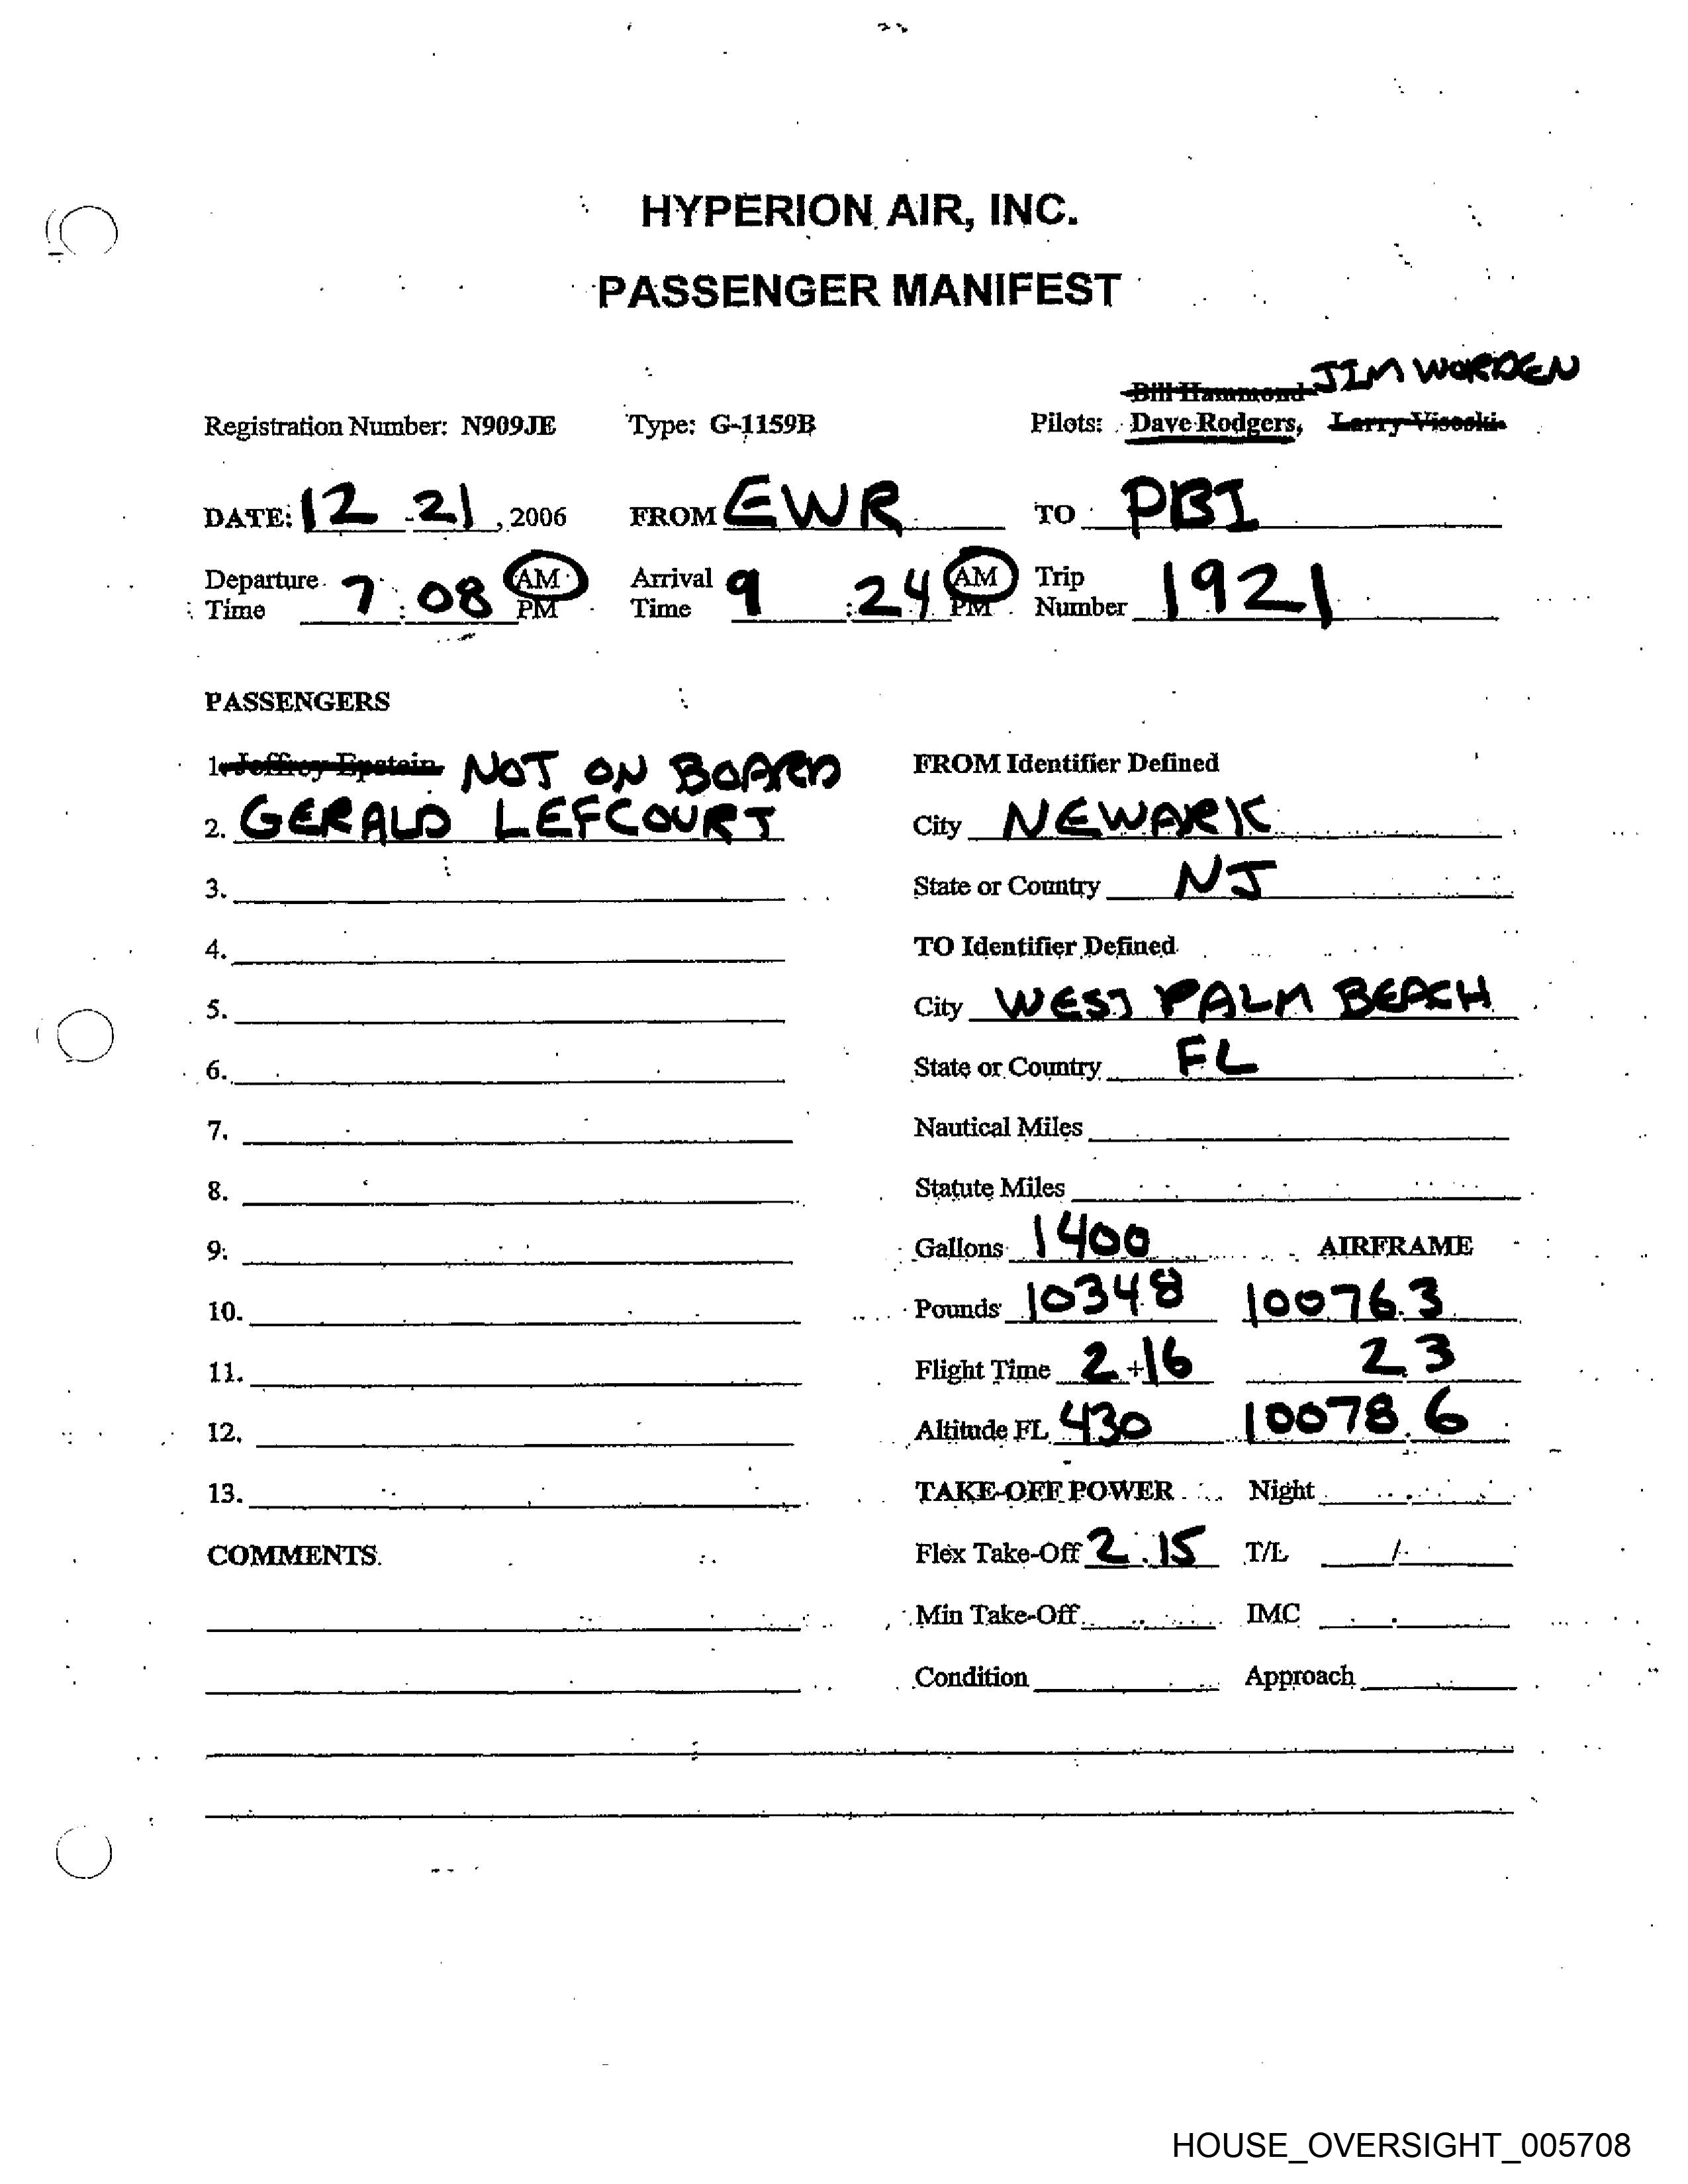 HYPERION AIR, INC.
PASSENGER MANIFEST
Bill Hammond JIM WORDEN
Registration Number: N909JE Type: G-1159B Pilots: Dave Rodgers, Larry Visoski
DATE: 12 21, 2006 FROM EWR TO PBI
Departure Time 7:08 AM PM Arrival Time 9:24 AM PM Trip Number 1921
PASSENGERS
1. Jeffrey Epstein NOT ON BOARD FROM Identifier Defined
2. GERALD LEFCOURT City NEWARK
3. State or Country NJ
4. TO Identifier Defined
5. City WEST PALM BEACH
6. State or Country FL
7. Nautical Miles
8. Statute Miles
9. Gallons 1400 AIRFRAME
10. Pounds 10348 10076.3
11. Flight Time 2+16 2.3
12. Altitude FL 430 10078.6
13. TAKE-OFF POWER Night
COMMENTS Flex Take-Off 2.15 T/L /
Min Take-Off IMC
Condition Approach
HOUSE_OVERSIGHT_005708